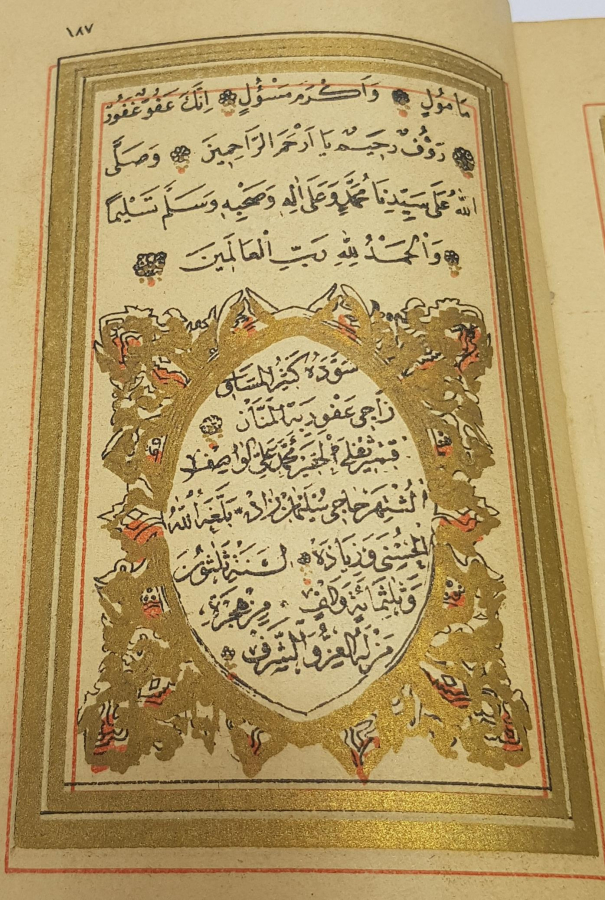 ١٨٧
مَأمُولٍ وَاَكْرَمِ مَسْؤُلٍ اِنَّكَ عَفُوٌّ غَفُورٌ
رَؤُفٌ رَحِيمٌ يَا اَرْحَمَ الرَّاحِمِينَ وَصَلَّى
اللهُ عَلَى سَيِّدِنَا مُحَمَّدٍ وَعَلَى اٰلِهِ وَصَحْبِهِ وَسَلَّمَ تَسْلِيمًا
وَالْحَمْدُ لِلّٰهِ رَبِّ الْعَالَمِينَ
سَوَّدَهُ كَثِيرُ الْمَسَاوِى
رَاجِى عَفْوِ رَبِّهِ الْمَنَّانِ
مُحَمَّد عَلِى الْوَصْفِى
الْمُشْتَهِرْ حَاجِى سُلَيْمَانْ زَادَه بَلَّغَهُ اللهُ
الْحُسْنٰى وَزِيَادَةً لِسَنَةِ ثَلٰثُونَ
وَثَلٰثُمِائَةٍ وَاَلْفٍ مِنْ هِجْرَةِ
مَنْ لَهُ الْعِزُّ وَالشَّرَفُ